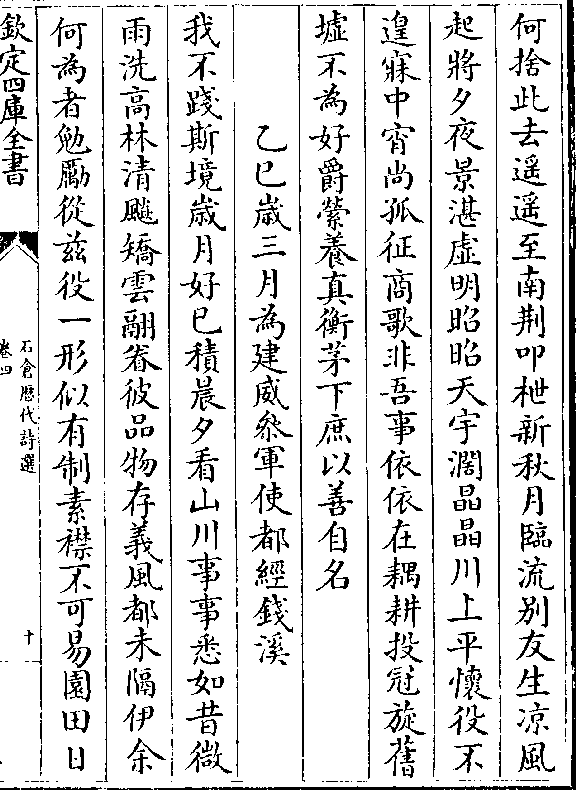 何捨此去遥遥至南荆叩枻新秋月臨流别友生凉風
起將夕夜景湛虚明昭昭天宇濶晶晶川上平懐役不
遑寐中宵尚孤征商歌非吾事依依在耦耕投冠旋舊
墟不為好爵縈養真衡茅下庶以善自名
乙巳歳三月為建威叅軍使都經錢溪
我不踐斯境歳月好已積晨夕看山川事事悉如昔微
雨洗高林清飈矯雲翮眷彼品物存義風都未隔伊余
何為者勉勵從兹役一形似有制素襟不可易園田日
欽定四庫全書
石倉歴代詩選
卷四
十